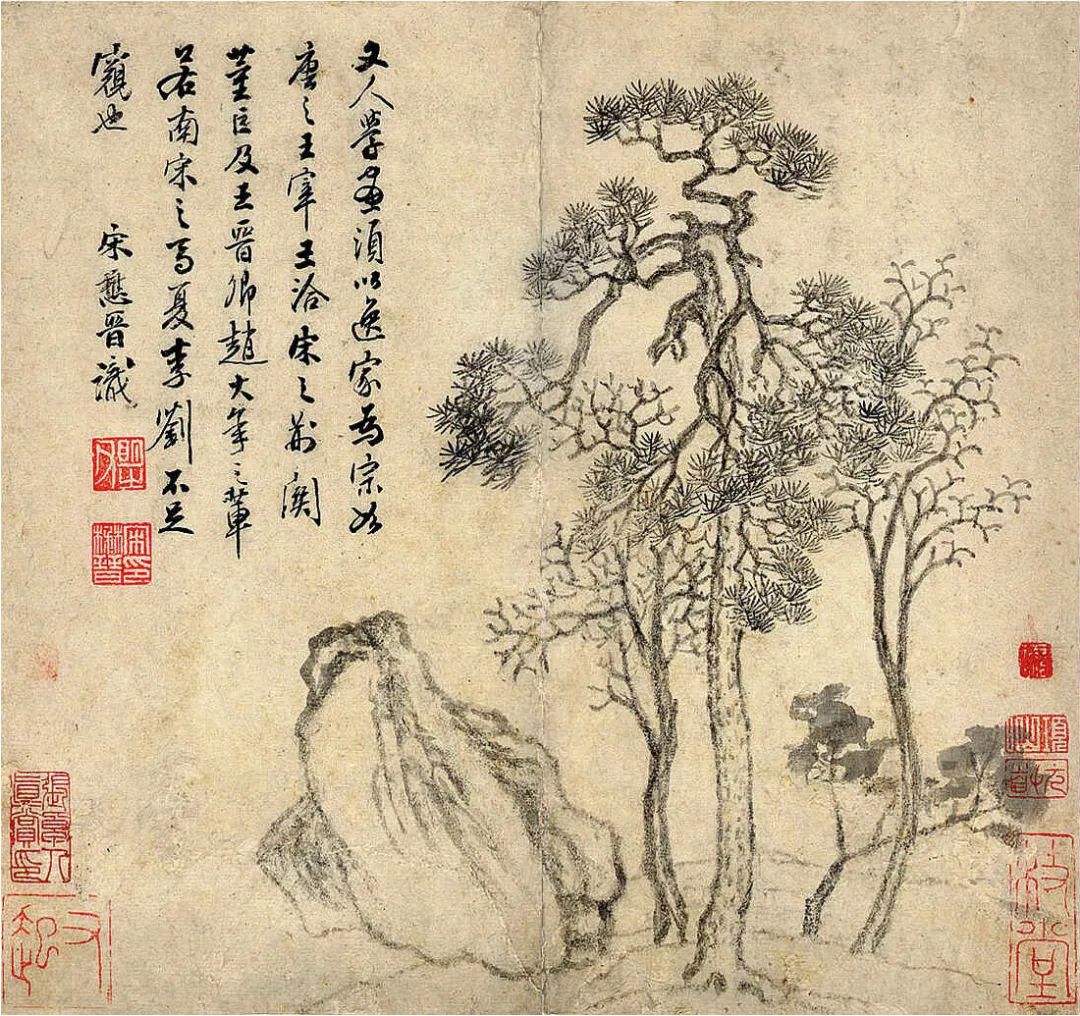 文人學畫須以逸家為宗如
唐之王宰王洽宋之荊關
董巨及王晉卿趙大年之輩
若南宋之馬夏李劉不足
觀也
宋懋晉識
宋印懋晉